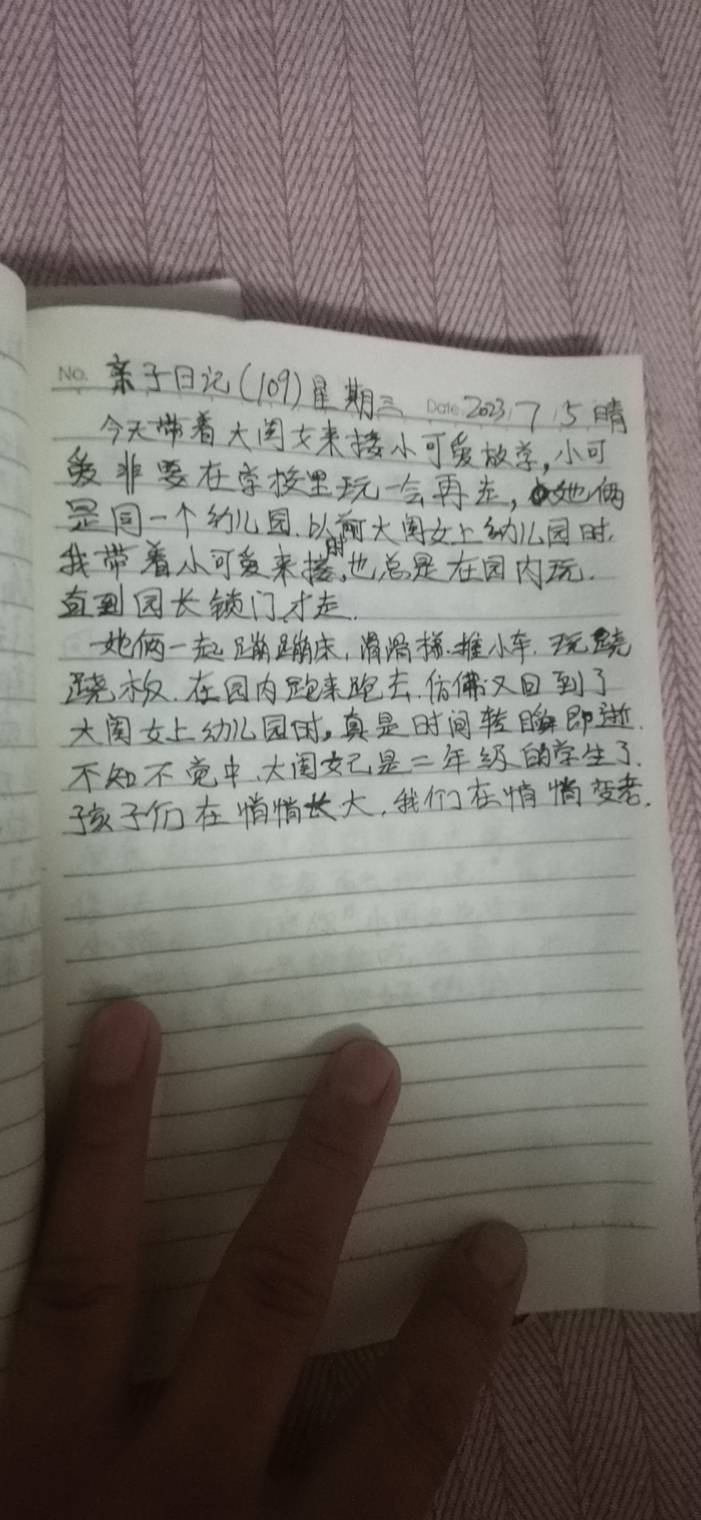 No. 亲子日记(109)星期三 Date 2023 7 5 晴
今天带着大闺女来接小可爱放学,小可
爱非要在学校里玩一会再走,她俩
是同一个幼儿园.以前大闺女上幼儿园时.
我带着小可爱来接时,也总是在园内玩.
直到园长锁门才走.
她俩一起蹦蹦床,滑滑梯.推小车.玩跷
跷板.在园内跑来跑去.仿佛又回到了
大闺女上幼儿园时。真是时间转瞬即逝.
不知不觉中.大闺女已是二年级的学生了.
孩子们在悄悄长大,我们在悄悄变老.